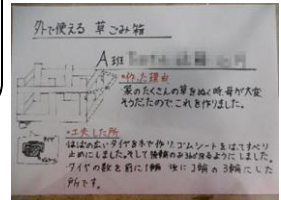 外で使える 草ごみ箱
A班
・作った理由
家のたくさんの草をぬく時、母が大変
そうだったのでこれを作りました。
・工夫した所
はばの広いタイヤを木で作り、ゴムシートをはってすべり
止めにしました。そして後輪のみ回るようにしました。
タイヤの数を前に1輪 後に2輪の3輪にした
所です。